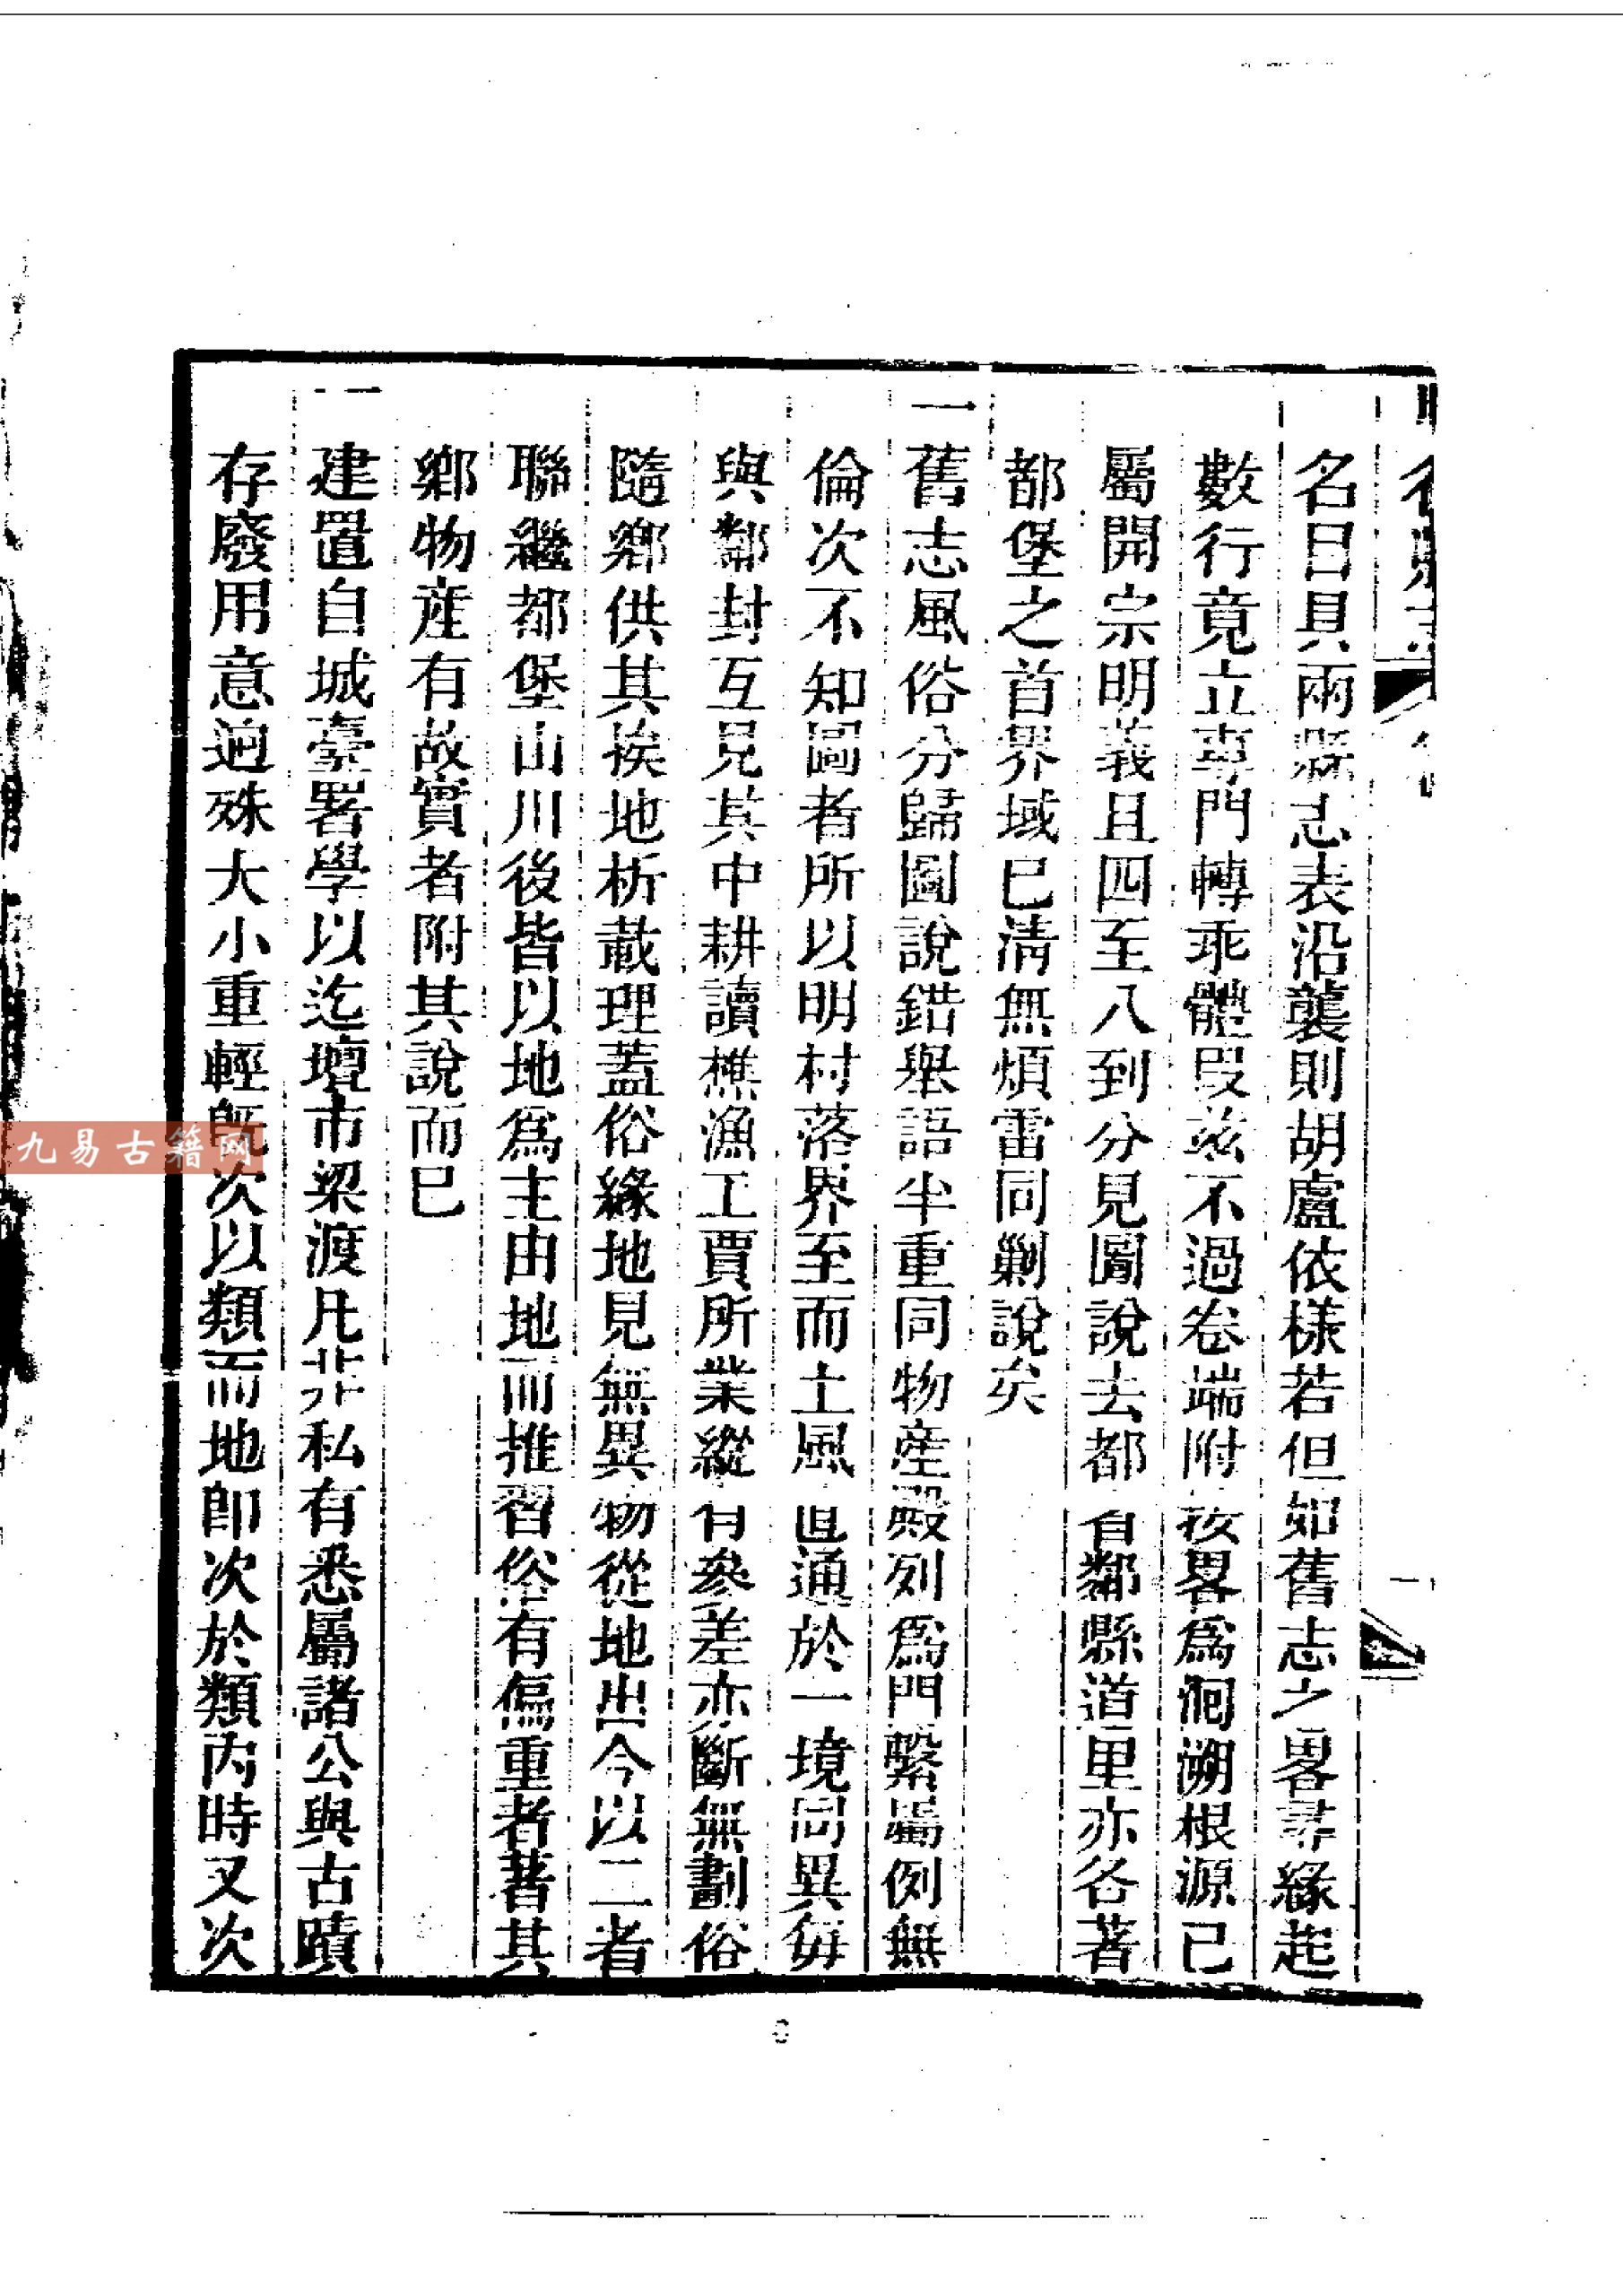 名曰具兩縣志表沿襲則胡盧依樣若但如舊志之畧尋緣起
數行竟立專門轉乖體段茲不過卷端附按畧為泂溯根源已
屬開宗明義且四至八到分見圖說去都 自鄰縣道里亦各著
都堡之首界域已清無煩雷同剿說矣
一舊志風俗分歸圖說錯舉語半重同物產殿列爲門繫屬例無
倫次不知圖者所以明村落界至而土風 通於一境同異每
與鄰封互見其中耕讀樵漁工賈所業縱有參差亦斷無劃俗
隨鄉供其挨地析載理蓋俗緣地見無異物從地出今以二者
聯繼都堡山川後皆以地爲主由地而推習俗有偏重者著其
鄉物產有故實者附其說而已
一建置自城臺署學以迄壇市梁渡凡非私有悉屬諸公與古蹟
存廢用意逈殊大小重輕旣次以類而地卽次於類內時又次
九易古籍网